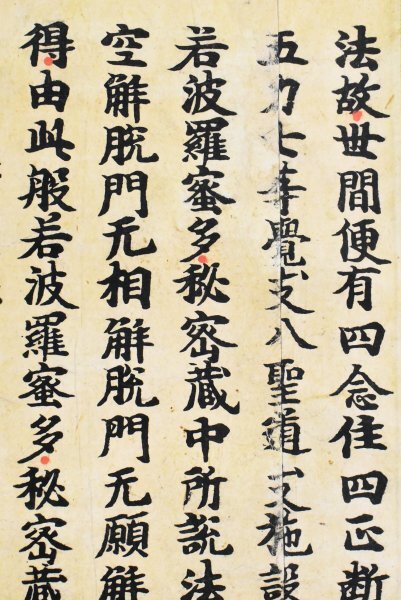 法故世間便有四念住四正断
五力七等覺支八聖道支施設
若波羅蜜多秘密藏中所說法
空解脫門无相解脫門无願解
得由此般若波羅蜜多秘密藏